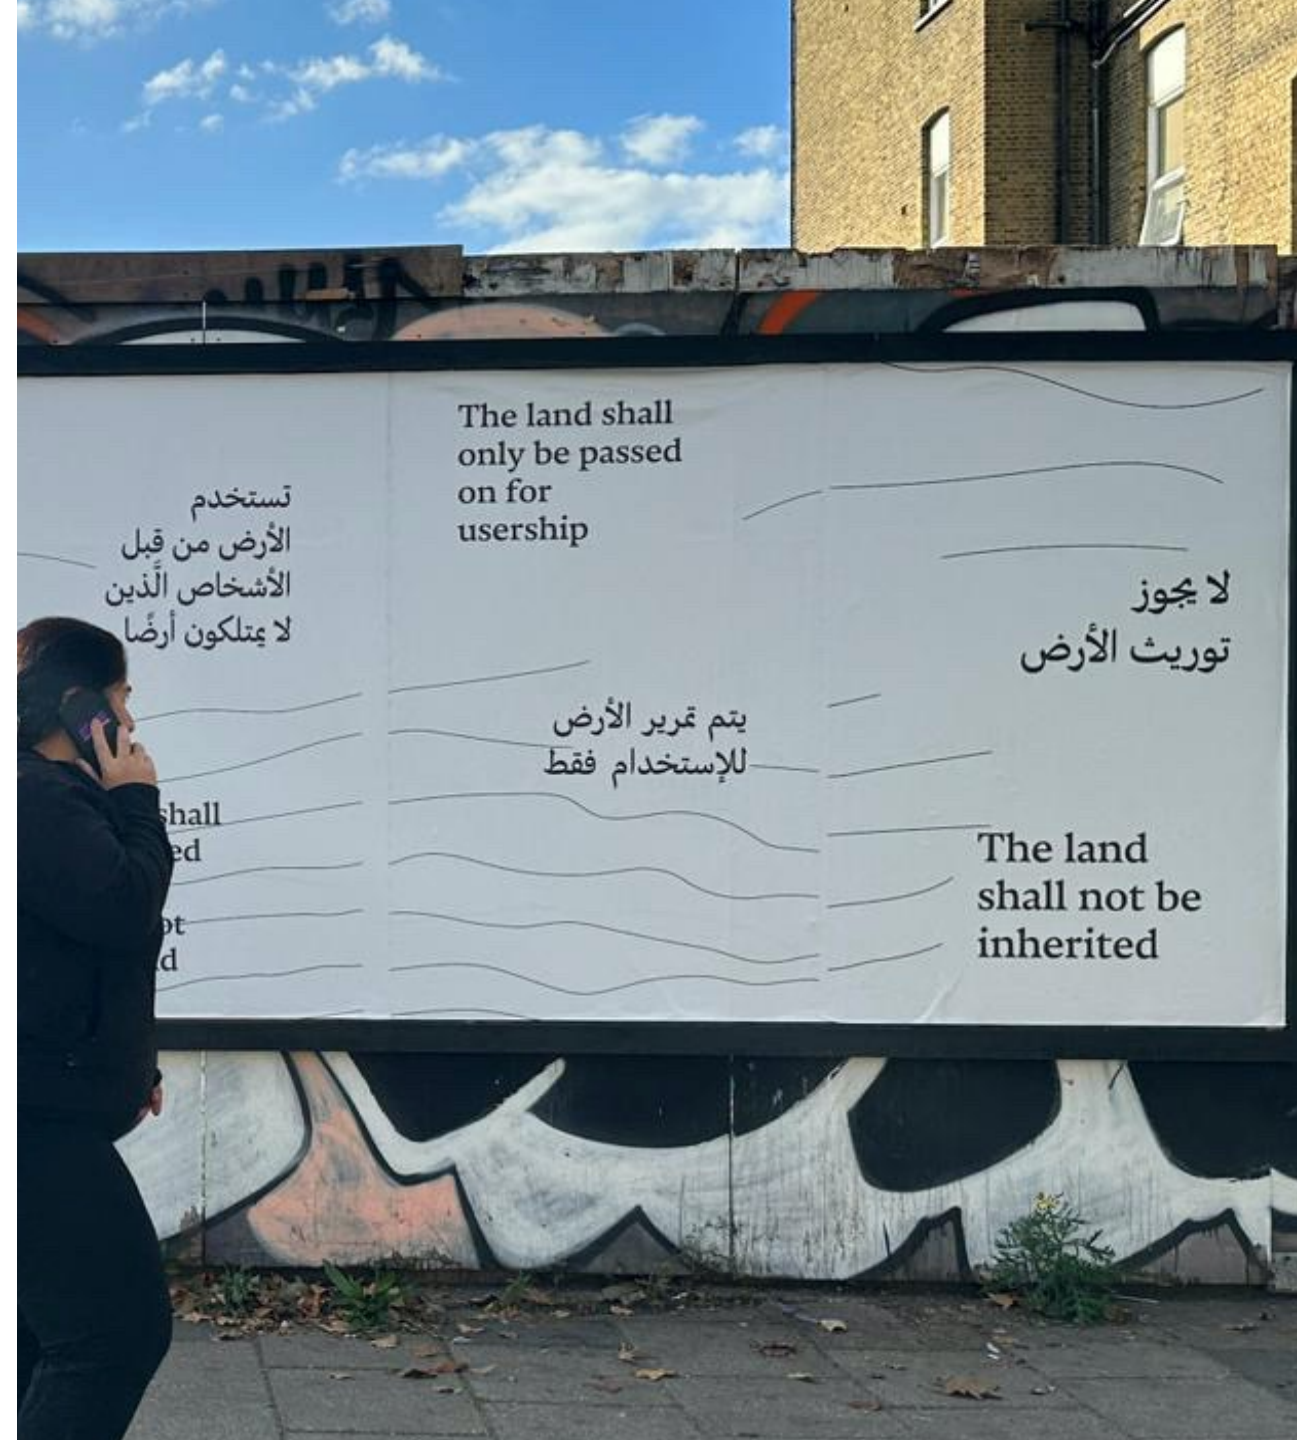 تستخدم
الأرض من قبل
الأشخاص الَّذين
لا يمتلكون أرضًا
shall
The land shall
only be passed
on for
usership
يتم تمرير الأرض
للإستخدام فقط
لا يجوز
توريث الأرض
The land
shall not be
inherited